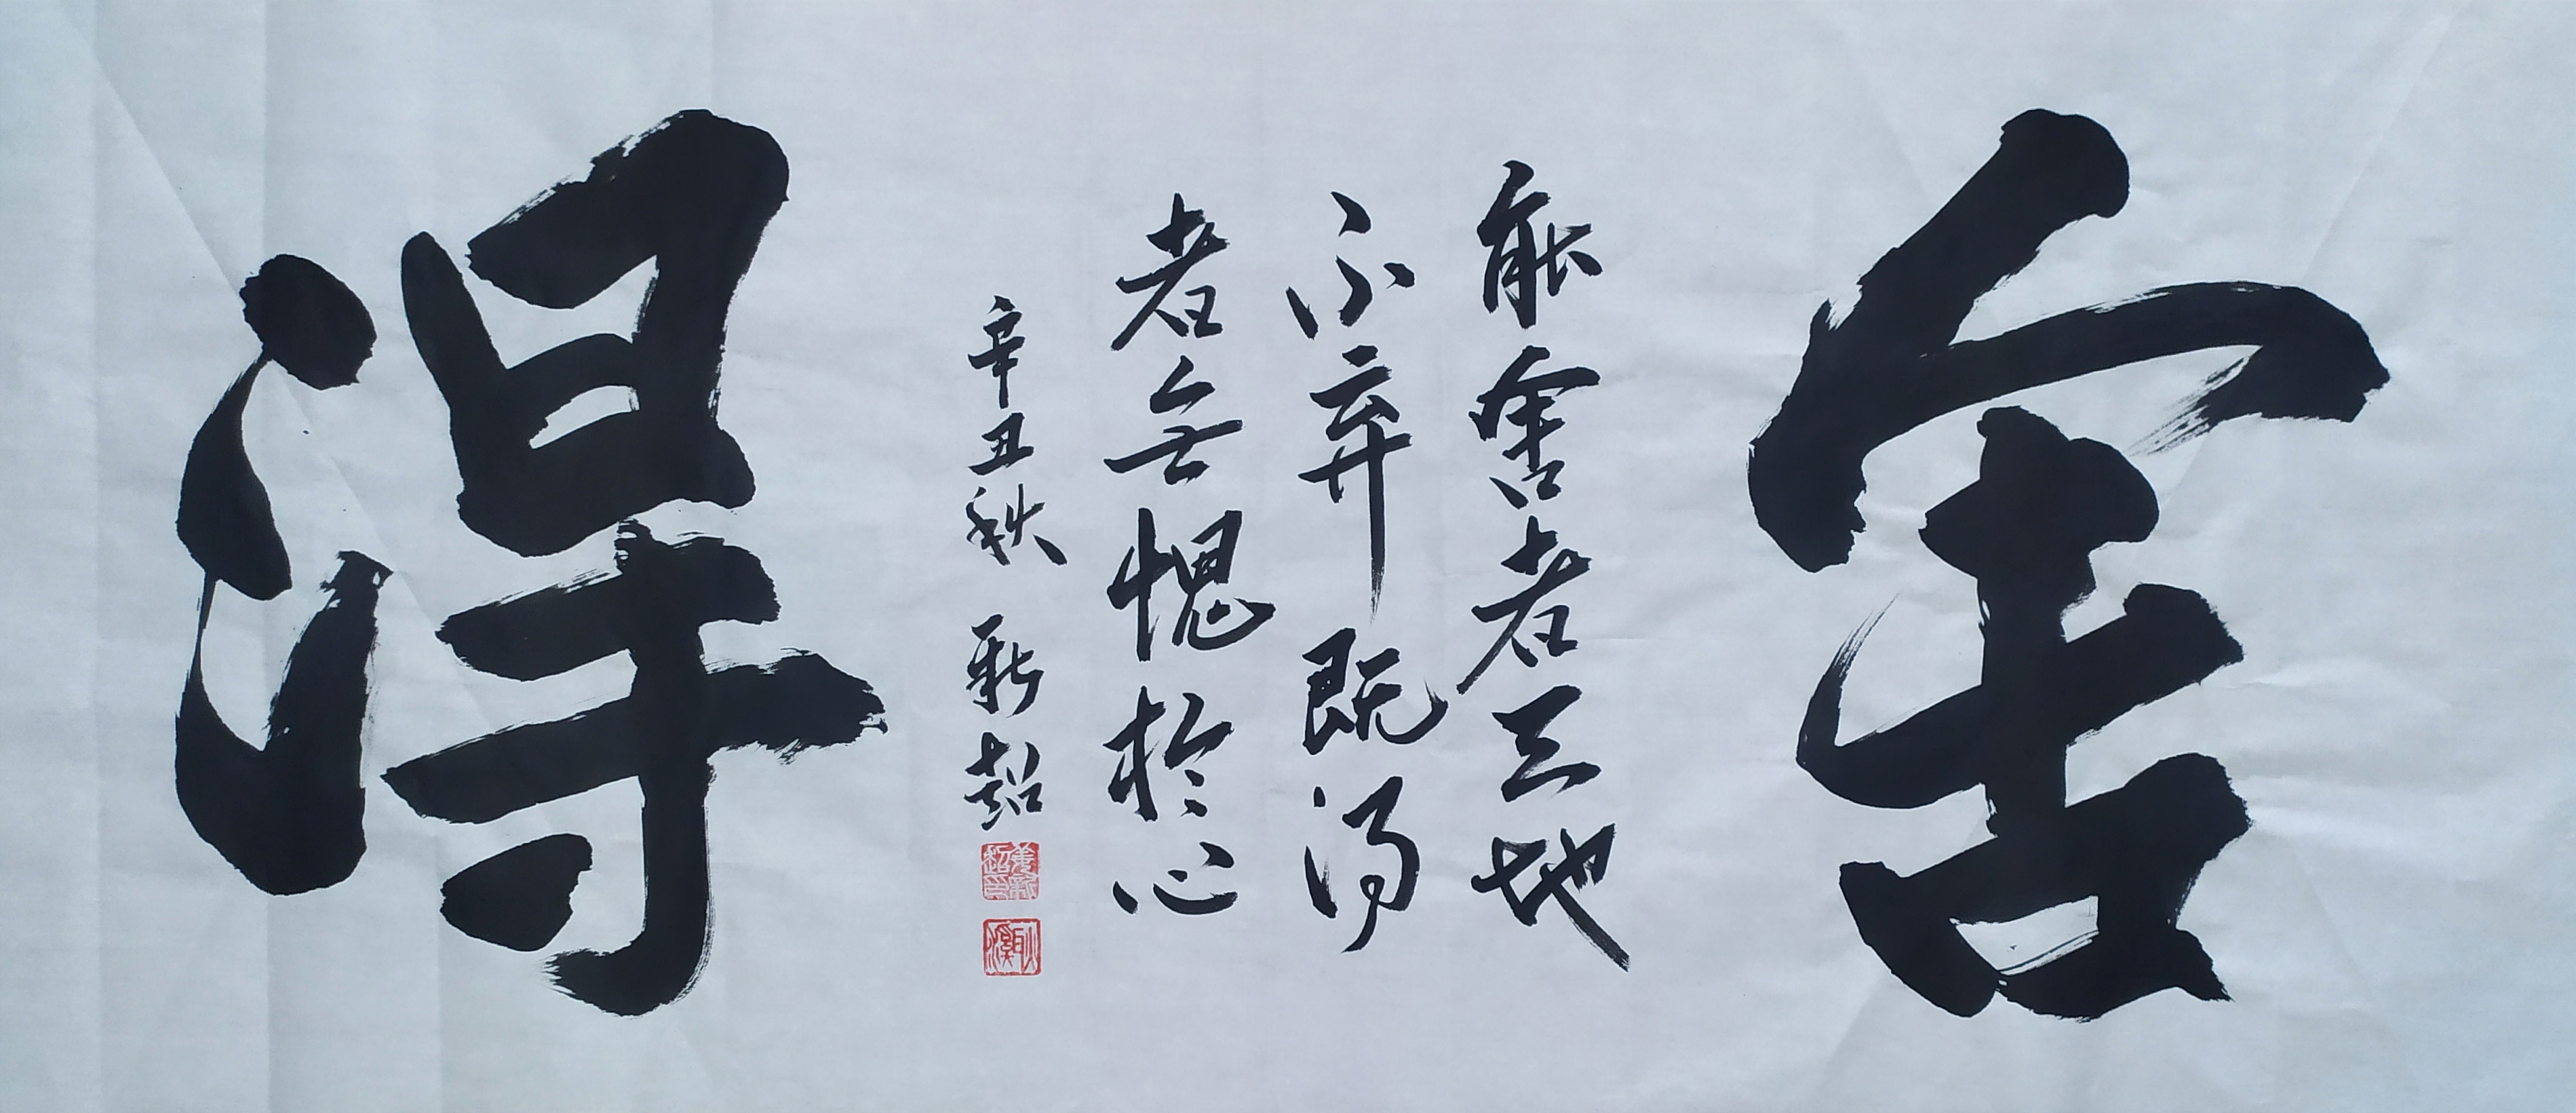 舍
能舍者天地
不弃既得
者无愧於心
得
辛丑秋 新超